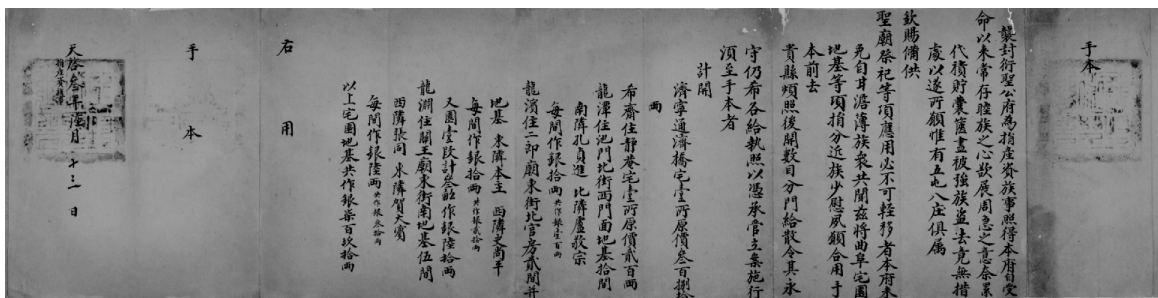 手本
襲封衍聖公府為捐產資族事照得本府自受
命以來常存睦族之心欲展周急之意奈累
代積貯囊篋盡被強族盜去竟無措
處以遂所願惟有五屯八庄俱屬
欽賜備供
聖廟祭祀等項應用必不可輕移者本府未
免自甘澹薄族眾共聞茲將曲阜宅園
地基等項捐分近族少慰夙願合用手
本前去
貴縣煩照後開數目分門給散令其永
守仍希各給執照以憑承管立案施行
須至手本者
計開
濟寧通濟橋宅壹所原價叁百捌拾
兩
希齋住靜巷宅壹所原價貳百兩
龍潭住池門北街西門面地基拾間
南隣孔貞進 北隣盧敎宗
每間作銀拾兩 共作銀壹百兩
龍濱住二郎廟東街北官房貳間并
地基 東隣本主 西隣史尚平
每間作銀拾兩 共作銀貳拾兩
又園壹段計叁畝作銀陸拾兩
龍淵住關王廟東街南地基伍間
西隣張同 東隣賀大賓
每間作銀陸兩 共作銀叁拾兩
以上宅園地基共作銀柒百玖拾兩
右用
手本
天啓叁年陸月 十三 日
捐產資族事